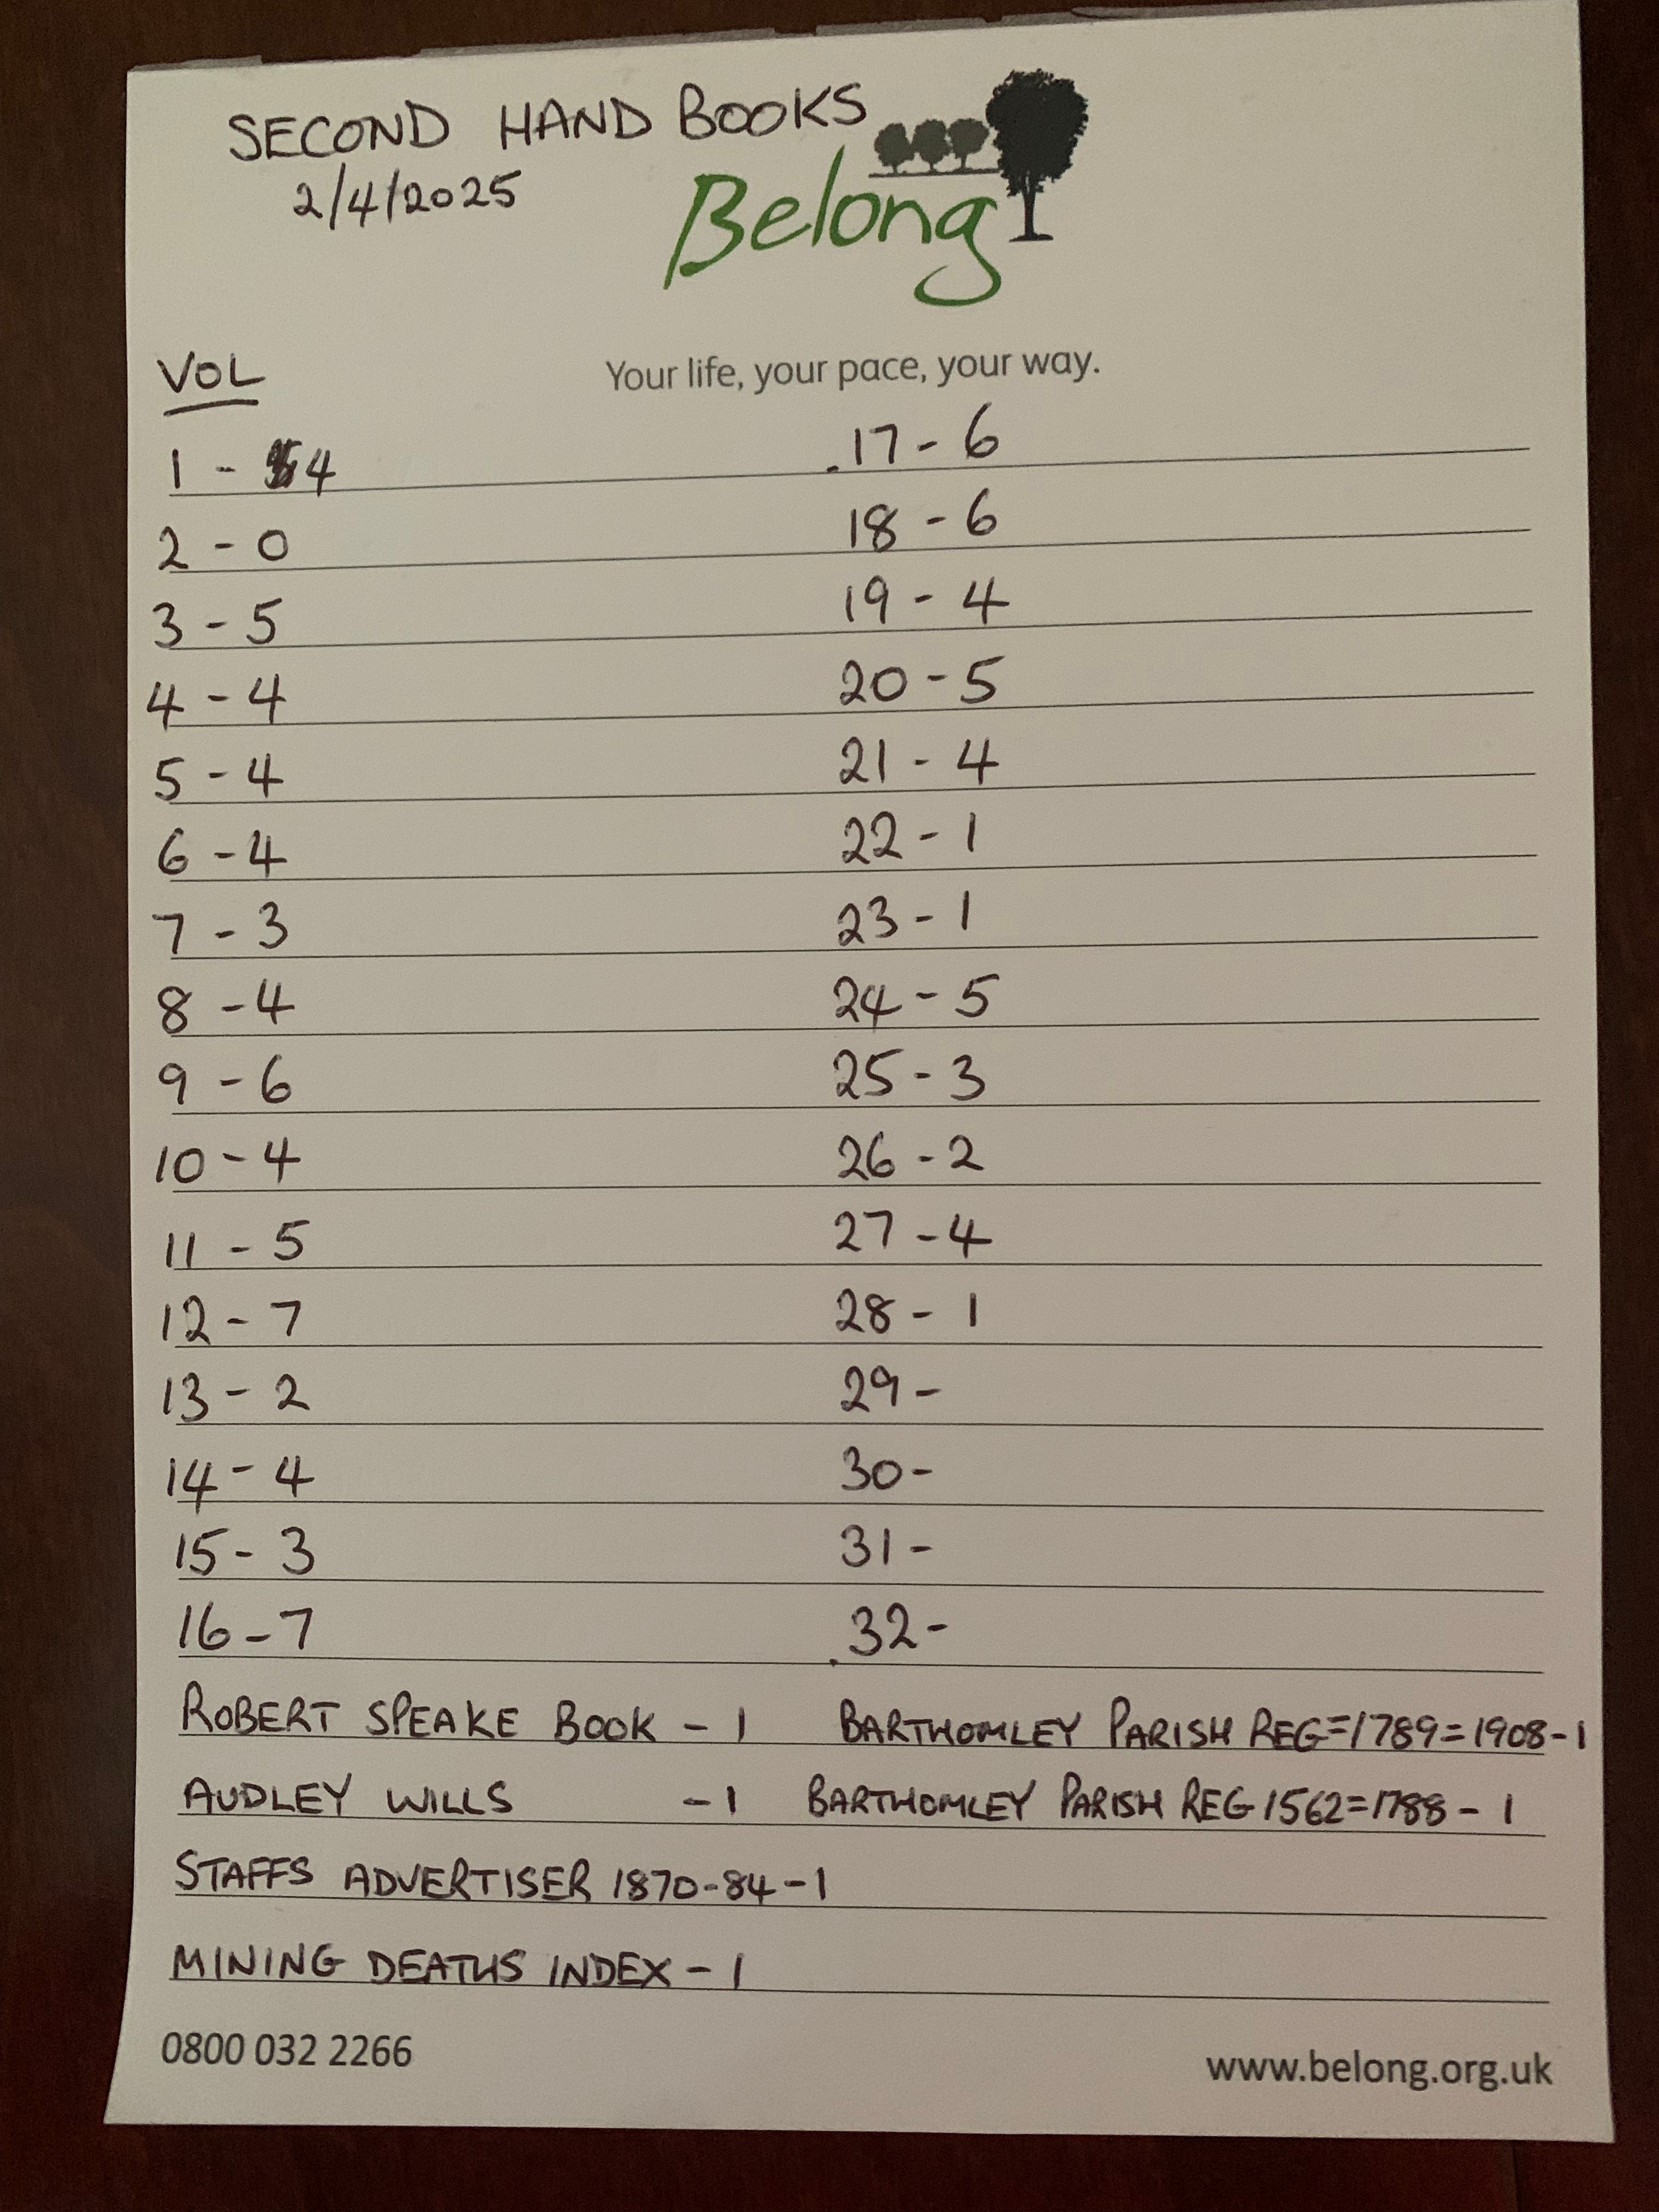 SECOND HAND BOOKS
2/4/2025
Belong
Your life, your pace, your way.
VOL
1 - 4
2 - 0
3 - 5
4 - 4
5 - 4
6 - 4
7 - 3
8 - 4
9 - 6
10 - 4
11 - 5
12 - 7
13 - 2
14 - 4
15 - 3
16 - 7
17 - 6
18 - 6
19 - 4
20 - 5
21 - 4
22 - 1
23 - 1
24 - 5
25 - 3
26 - 2
27 - 4
28 - 1
29 -
30 -
31 -
32 -
ROBERT SPEAKE BOOK - 1
BARTHOMLEY PARISH REG=1789=1908-1
AUDLEY WILLS - 1
BARTHOMLEY PARISH REG 1562=1788 - 1
STAFFS ADVERTISER 1870-84-1
MINING DEATHS INDEX - 1
0800 032 2266
www.belong.org.uk